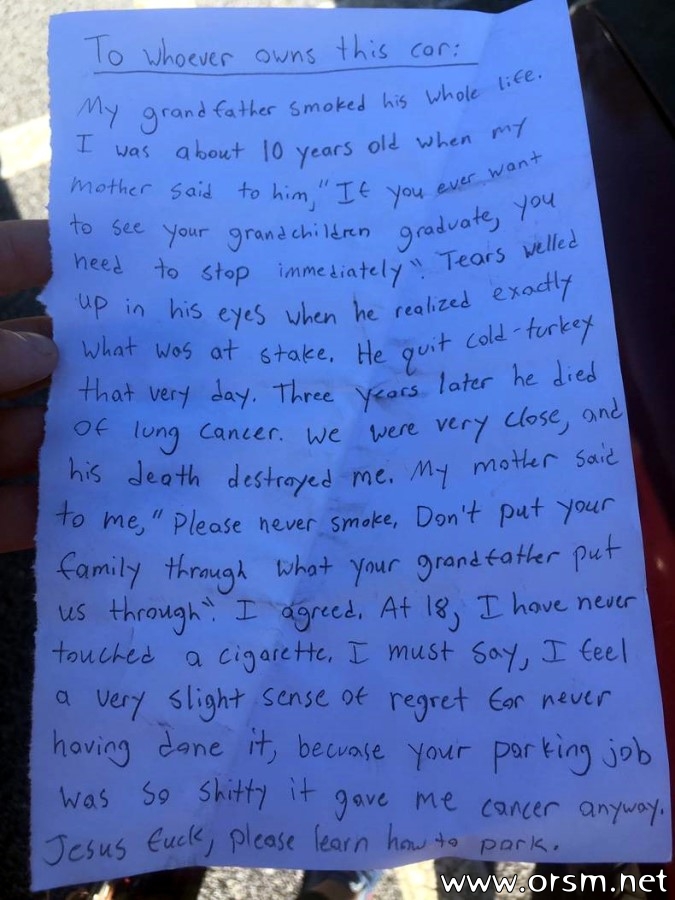 To whoever owns this car:
My grandfather smoked his whole life.
I was about 10 years old when my
mother said to him, "If you ever want
to see your grandchildren graduate, you
need to stop immediately". Tears welled
up in his eyes when he realized exactly
what was at stake. He quit cold-turkey
that very day. Three years later he died
of lung cancer. We were very close, and
his death destroyed me. My mother said
to me, "Please never smoke. Don't put your
family through what your grandfather put
us through". I agreed. At 18, I have never
touched a cigarette. I must say, I feel
a very slight sense of regret for never
having done it, becuase your parking job
was so shitty it gave me cancer anyway.
Jesus fuck, please learn how to park.
www.orsm.net